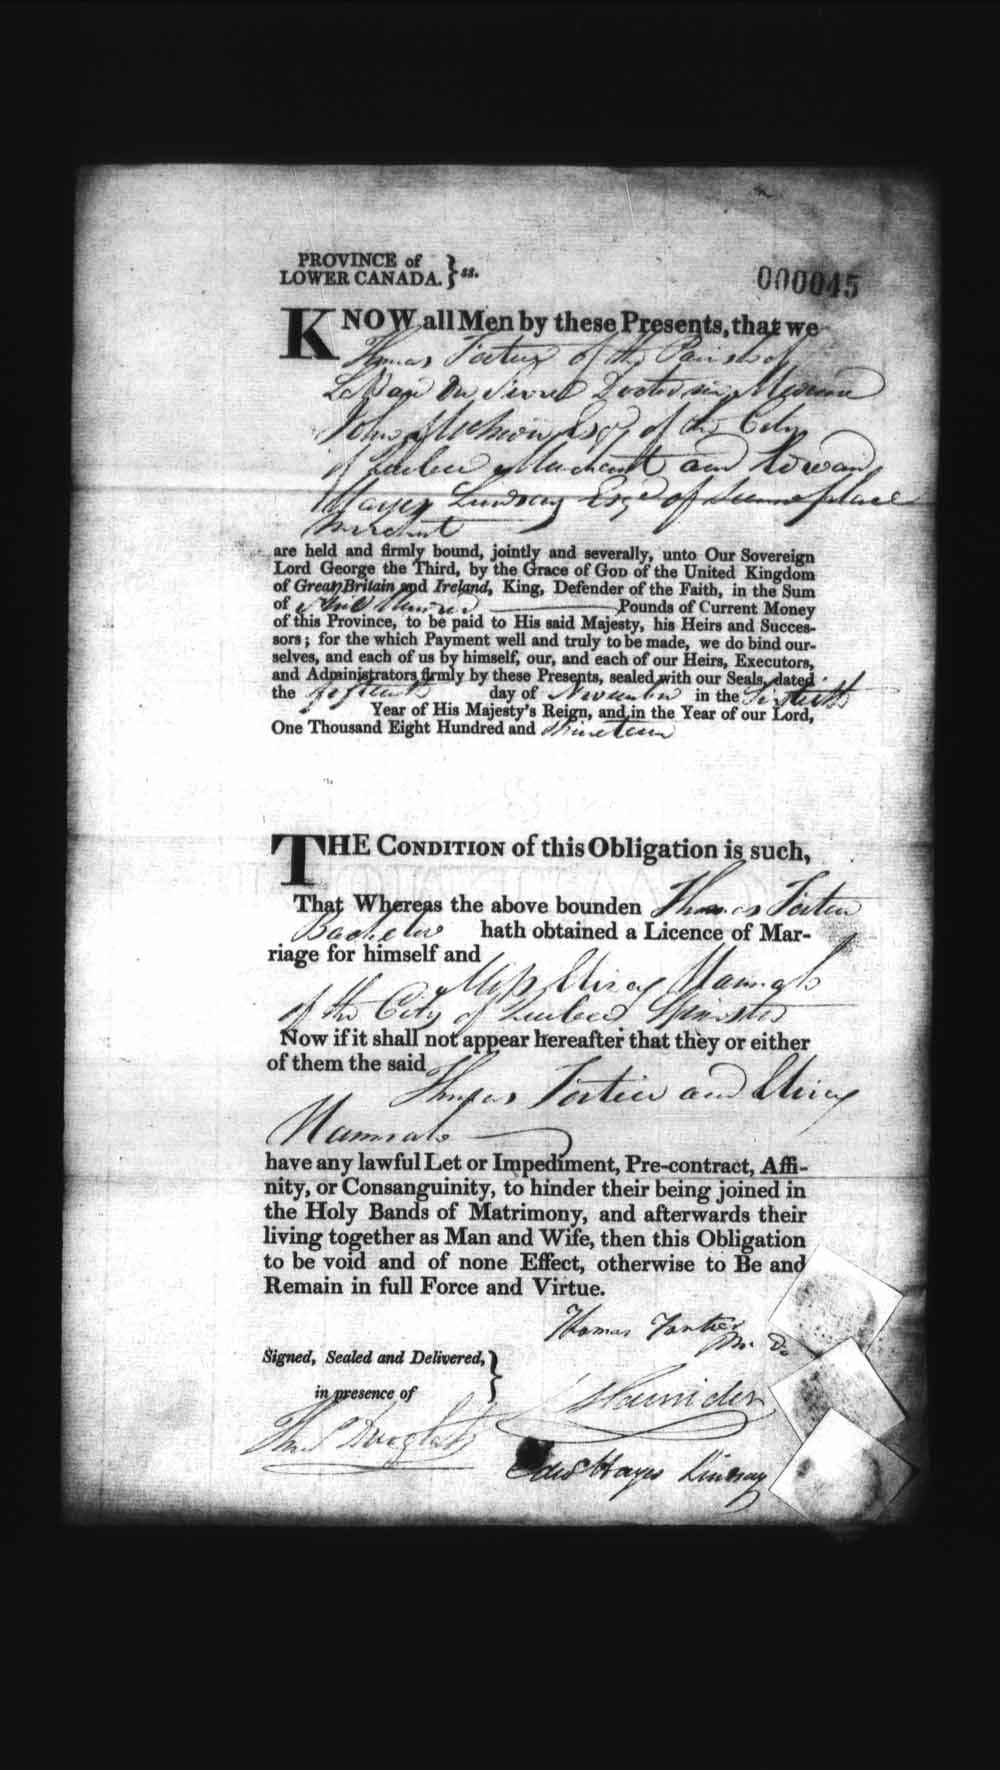 PROVINCE of
LOWER CANADA. } ss.
000045
KNOW all Men by these Presents, that we
Thomas Fortier of the Parish of
Doctor in
John Esqr, of the City
of Quebec Merchant and Edward
Hayes Lindsay Esqr of same place
Merchant
are held and firmly bound, jointly and severally, unto Our Sovereign
Lord George the Third, by the Grace of GOD of the United Kingdom
of Great Britain and Ireland, King, Defender of the Faith, in the Sum
of Hundred Pounds of Current Money
of this Province, to be paid to His said Majesty, his Heirs and Succes-
sors; for the which Payment well and truly to be made, we do bind our-
selves, and each of us by himself, our, and each of our Heirs, Executors,
and Administrators firmly by these Presents, sealed with our Seals, dated
the fifteenth day of November in the Sixtieth
Year of His Majesty's Reign, and in the Year of our Lord,
One Thousand Eight Hundred and Nineteen
THE CONDITION of this Obligation is such,
That Whereas the above bounden Thomas Fortier
Bachelor hath obtained a Licence of Mar-
riage for himself and
Miss
of the City of Quebec Spinster
Now if it shall not appear hereafter that they or either
of them the said
Thomas Fortier and
have any lawful Let or Impediment, Pre-contract, Affi-
nity, or Consanguinity, to hinder their being joined in
the Holy Bands of Matrimony, and afterwards their
living together as Man and Wife, then this Obligation
to be void and of none Effect, otherwise to Be and
Remain in full Force and Virtue.
Thomas Fortier
M. D.
Signed, Sealed and Delivered, }
in presence of
Thos Douglass
Edwd Hayes Lindsay